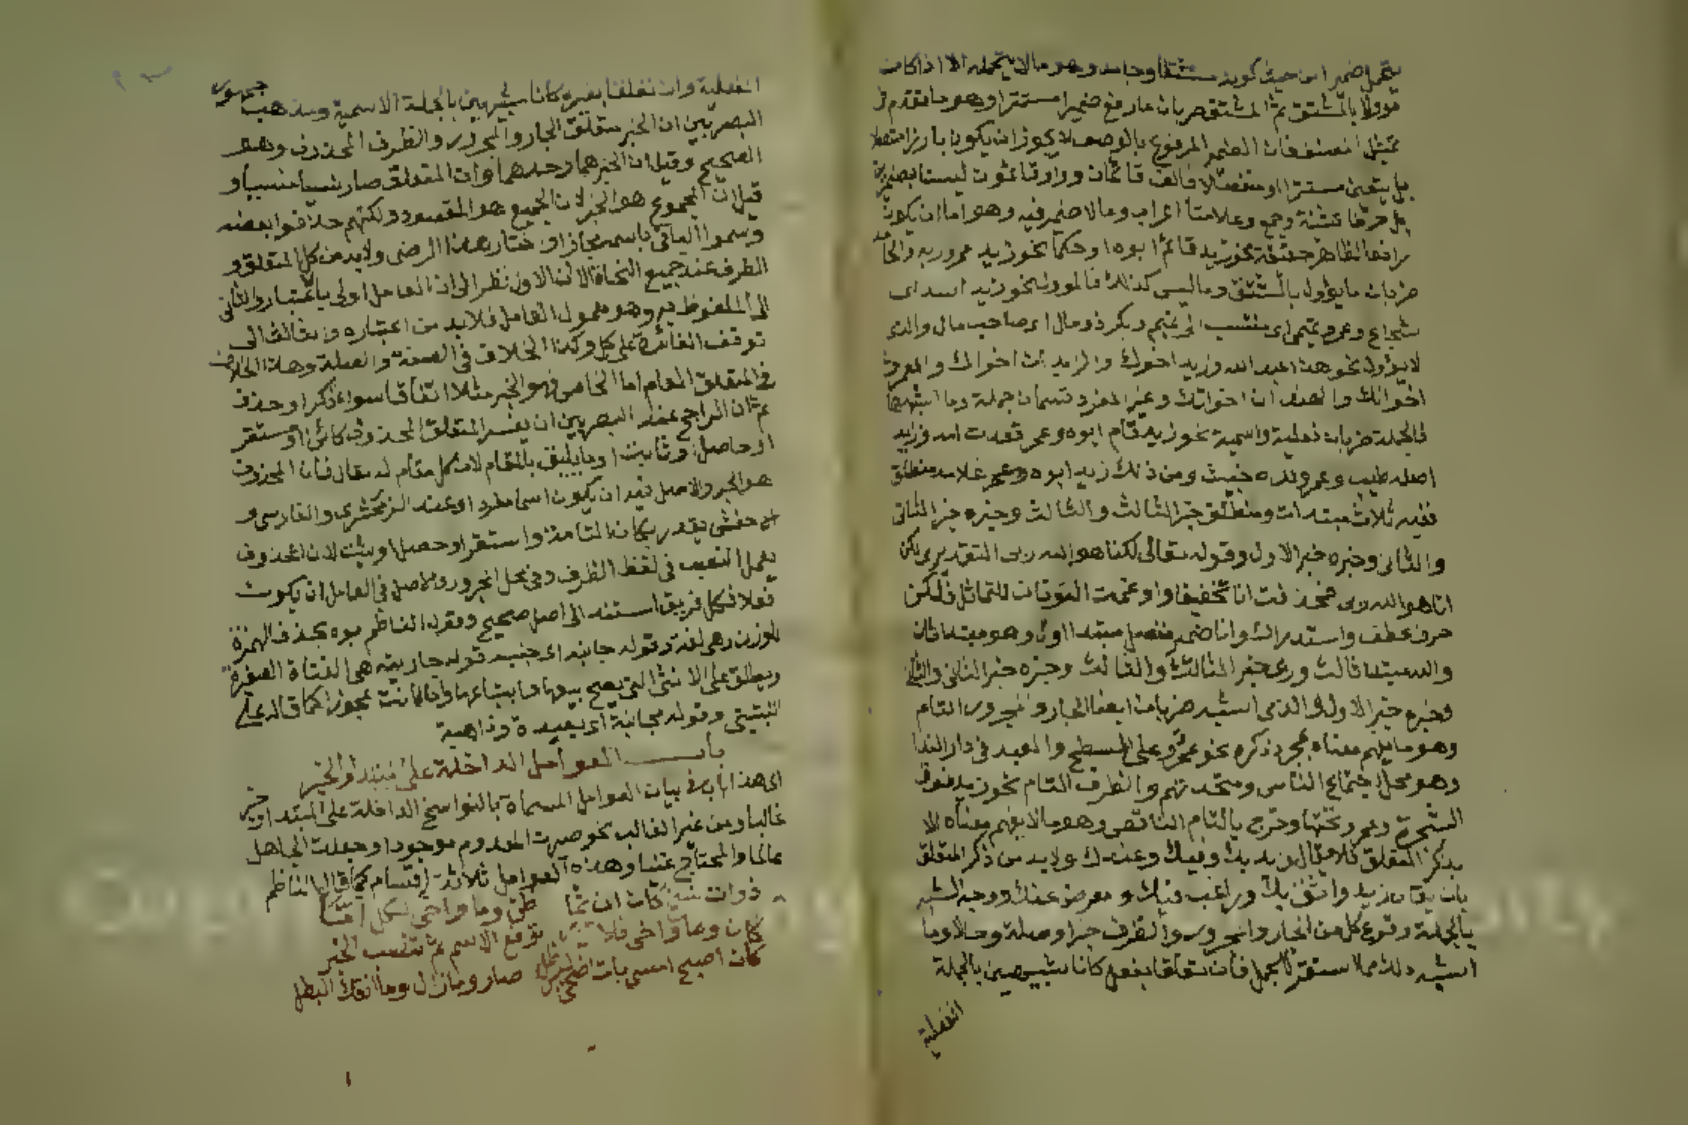 يتحمل ضمير امن حيث كونه مشتقا وجامد وهو ما لا يتحمله الا اذا كان
مؤولا بالمشتق ثم المشتق ضربان ما رفع ضميرا مستترا وهو ما تقدم في
تمثيل المصنف فان الضمير المرفوع بالوصف لا يجوز ان يكون بارزا متصلا
بل يتعين مستترا او منفصلا فالف قائمان وواو قائمون ليستا بضميرين
بل حرفا تثنية وجمع وعلامتا اعراب وما لا ضمير فيه وهو اما ان يكون
رافعا لظاهر حقيقة نحو زيد قائم ابوه او حكما نحو زيد ممرور به والجامد
ضربان ما يؤول بالمشتق وما ليس كذلك فالمؤول نحو زيد اسد اى
شجاع وعمرو تميمى اى منتسب الى تميم وبكر ذو مال اى صاحب مال والذى
لا يؤول نحو هذا عبد الله وزيد اخوك والزيدان اخواك والعمرون
اخوانك والهندات اخواتك وغير المفرد قسمان جملة وما اشبهها
فالجملة ضربان فعلية واسمية نحو زيد قام ابوه وعمرو قعدت امه وزيد
اصله طيب وعمرو ولده خبيث ومن ذلك زيد ابوه عمرو غلامه منطلق
ففيه ثلاث مبتدات ومنطلق خبر الثالث والثالث وخبره خبر الثانى
والثانى وخبره خبر الاول وقوله تعالى لكنا هو الله ربى التقدير لكن
انا هو الله ربى فحذفت انا تخفيفا وادغمت النونان للتماثل فلكن
حرف عطف واستدراك وانا ضمير منفصل مبتدا اول وهو مبتدا ثان
والله مبتدا ثالث وربى خبر الثالث والثالث وخبره خبر الثانى والثانى
وخبره خبر الاول والذى اشبه ضربان ايضا الجار والمجرور التام
وهو ما يفهم معناه بمجرد ذكره نحو عمرو على السطح والعبد فى دار الندا
وهو محل اجتماع الناس ومتحدثهم والظرف التام نحو زيد فوق
الشجرة وعمرو تحتها وخرج بالتام الناقص وهو ما لا يفهم معناه الا
بذكر المتعلق فلا يقال زيد بك وفيك وعنك ولا بد من ذكر المتعلق
بان يقال زيد واثق بك وراغب فيك ومعرض عنك ووجه الشبه
بالجملة وقوع كل من الجار والمجرور والظرف خبرا وصلة وحالا وما
اشبه ذلك مما استقر للجمل فان تعلقا بفعل كانا شبيهين بالجملة
الفعلية
الفعلية وان تعلقا بغيره كانا شبيهين بالجملة الاسمية ومذهب جمهور
البصريين ان الخبر متعلق الجار والمجرور والظرف المحذوف وهو
الصحيح وقيل ان الخبر هما وحدهما وان المتعلق صار نسيا منسيا و
قيل ان المجموع هو الخبر لان الجميع هو المقصود ولكنهم حذفوا بعضه
وسموا الباقى باسمه مجازا واختار هذا الرضى ولا بد من كل المتعلق و
الظرف عند جميع النحاة الا ان الاول نظر الى ان العامل اولى بالاعتبار والثانى
الى الملفوظ به وهو معمول العامل فلا بد من اعتباره والثالث الى
توقف الفائدة على كل وكذا الخلاف فى الصفة والصلة وهذا الخلاف
فى المتعلق العام اما الخاص فهو الخبر مثلا اتفاقا سواء ذكر او حذف
ثم ان الراجح عند البصريين ان يفسر المتعلق المحذوف بكائن او مستقر
او حاصل او ثابت او ما يليق بالمقام لان كل مقام له مقال فان المحذوف
هو الخبر والاصل فيه ان يكون اسما مفردا وعند الزمخشرى والفارسى و
الاخفش يقدر بكان التامة او استقر او حصل او ثبت لان المحذوف
يعمل النصب فى لفظ الظرف وفى محل المجرور والاصل فى العامل ان يكون
فعلا فكل فريق استند الى اصل صحيح وقول الناظم بوه بحذف الهمزة
للوزن وهى لغة وقوله جانبه اى جنبه قوله جاريته هى الفتاة الصغيرة
ويطلق على الانثى التى يصح بيعها وابتياعها وان كانت عجوزا كما قاله على
النبتيتى وقوله مجانبة اى بعيدة وذاهبة
باب العوامل الداخلة على المبتدا والخبر
اى هذا باب فى بيان العوامل المسماة بالنواسخ الداخلة على المبتدا وخبر
غالبا ومن غير الغالب نحو صيرت المعدوم موجودا وجعلت الجاهل
عالما والمحتاج غنيا وهذه العوامل ثلاثة اقسام كما قال الناظم
ظن وما واخى لكل
كان وما واخى ترفع الاسم ثم تنصب الخبر
كان اصبح امسى بات اضحى ظل صار وما زال وما انفك